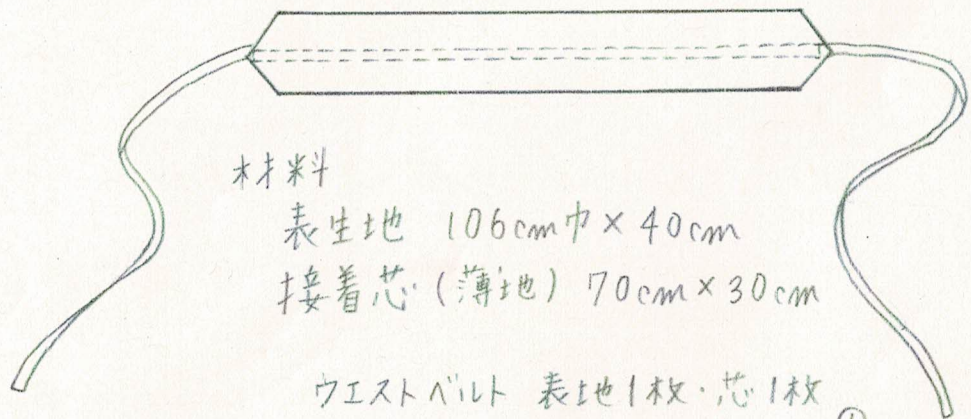 材料
表生地 106cm巾×40cm
接着芯(薄地) 70cm×30cm
ウエストベルト 表地1枚・芯1枚